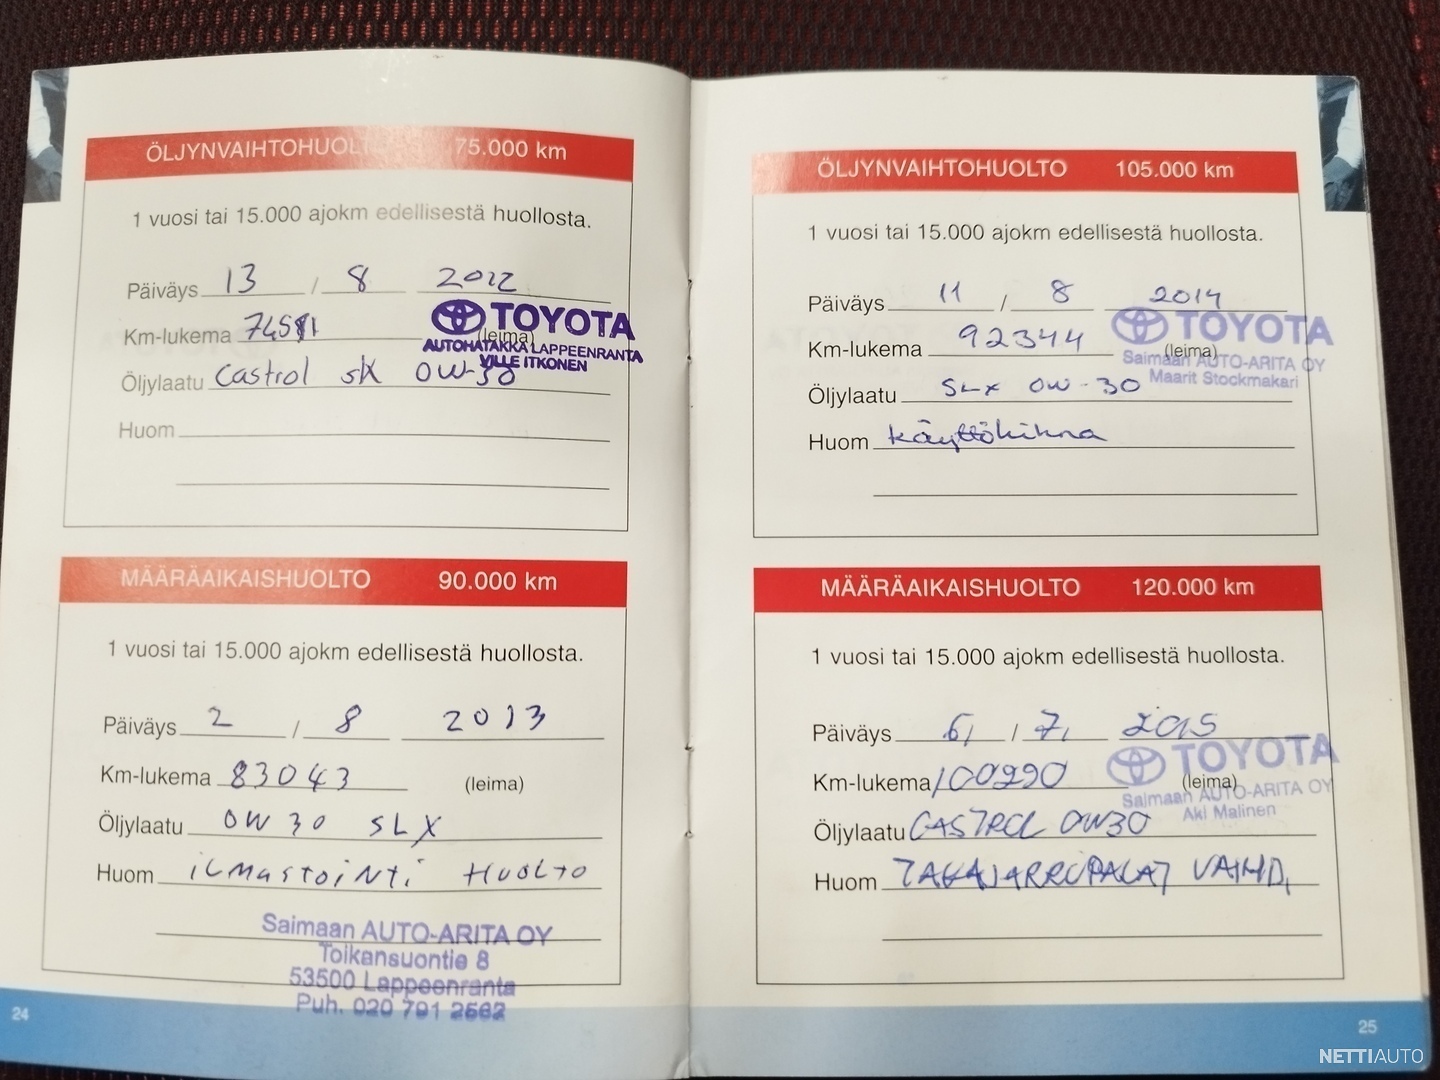 ÖLJYNVAIHTOHUOLTO 75.000 km
1 vuosi tai 15.000 ajokm edellisestä huollosta.
Päiväys 13 / 8 2012
Km-lukema (leima)
TOYOTA
AUTOHATAKKA LAPPEENRANTA
VILLE ITKONEN
Öljylaatu Castrol slX 0W-30
Huom
MÄÄRÄAIKAISHUOLTO 90.000 km
1 vuosi tai 15.000 ajokm edellisestä huollosta.
Päiväys 2 / 8 2013
Km-lukema 83043 (leima)
Öljylaatu 0W30 SLX
Huom ilmastointi HUOLTO
Saimaan AUTO-ARITA OY
Toikansuontie 8
53500 Lappeenranta
Puh. 020 791 2562
24
ÖLJYNVAIHTOHUOLTO 105.000 km
1 vuosi tai 15.000 ajokm edellisestä huollosta.
Päiväys 11 / 8 2014
Km-lukema 92344 (leima)
TOYOTA
Saimaan AUTO-ARITA OY
Maarit Stockmakari
Öljylaatu SLX 0W-30
Huom käyttöhihna
MÄÄRÄAIKAISHUOLTO 120.000 km
1 vuosi tai 15.000 ajokm edellisestä huollosta.
Päiväys 6, / 7, 2015
Km-lukema 100290 (leima)
TOYOTA
Saimaan AUTO-ARITA OY
Aki Malinen
Öljylaatu CASTROL 0W30
Huom TAKAJARRUPALAT VAIHD,
25
NETTIAUTO